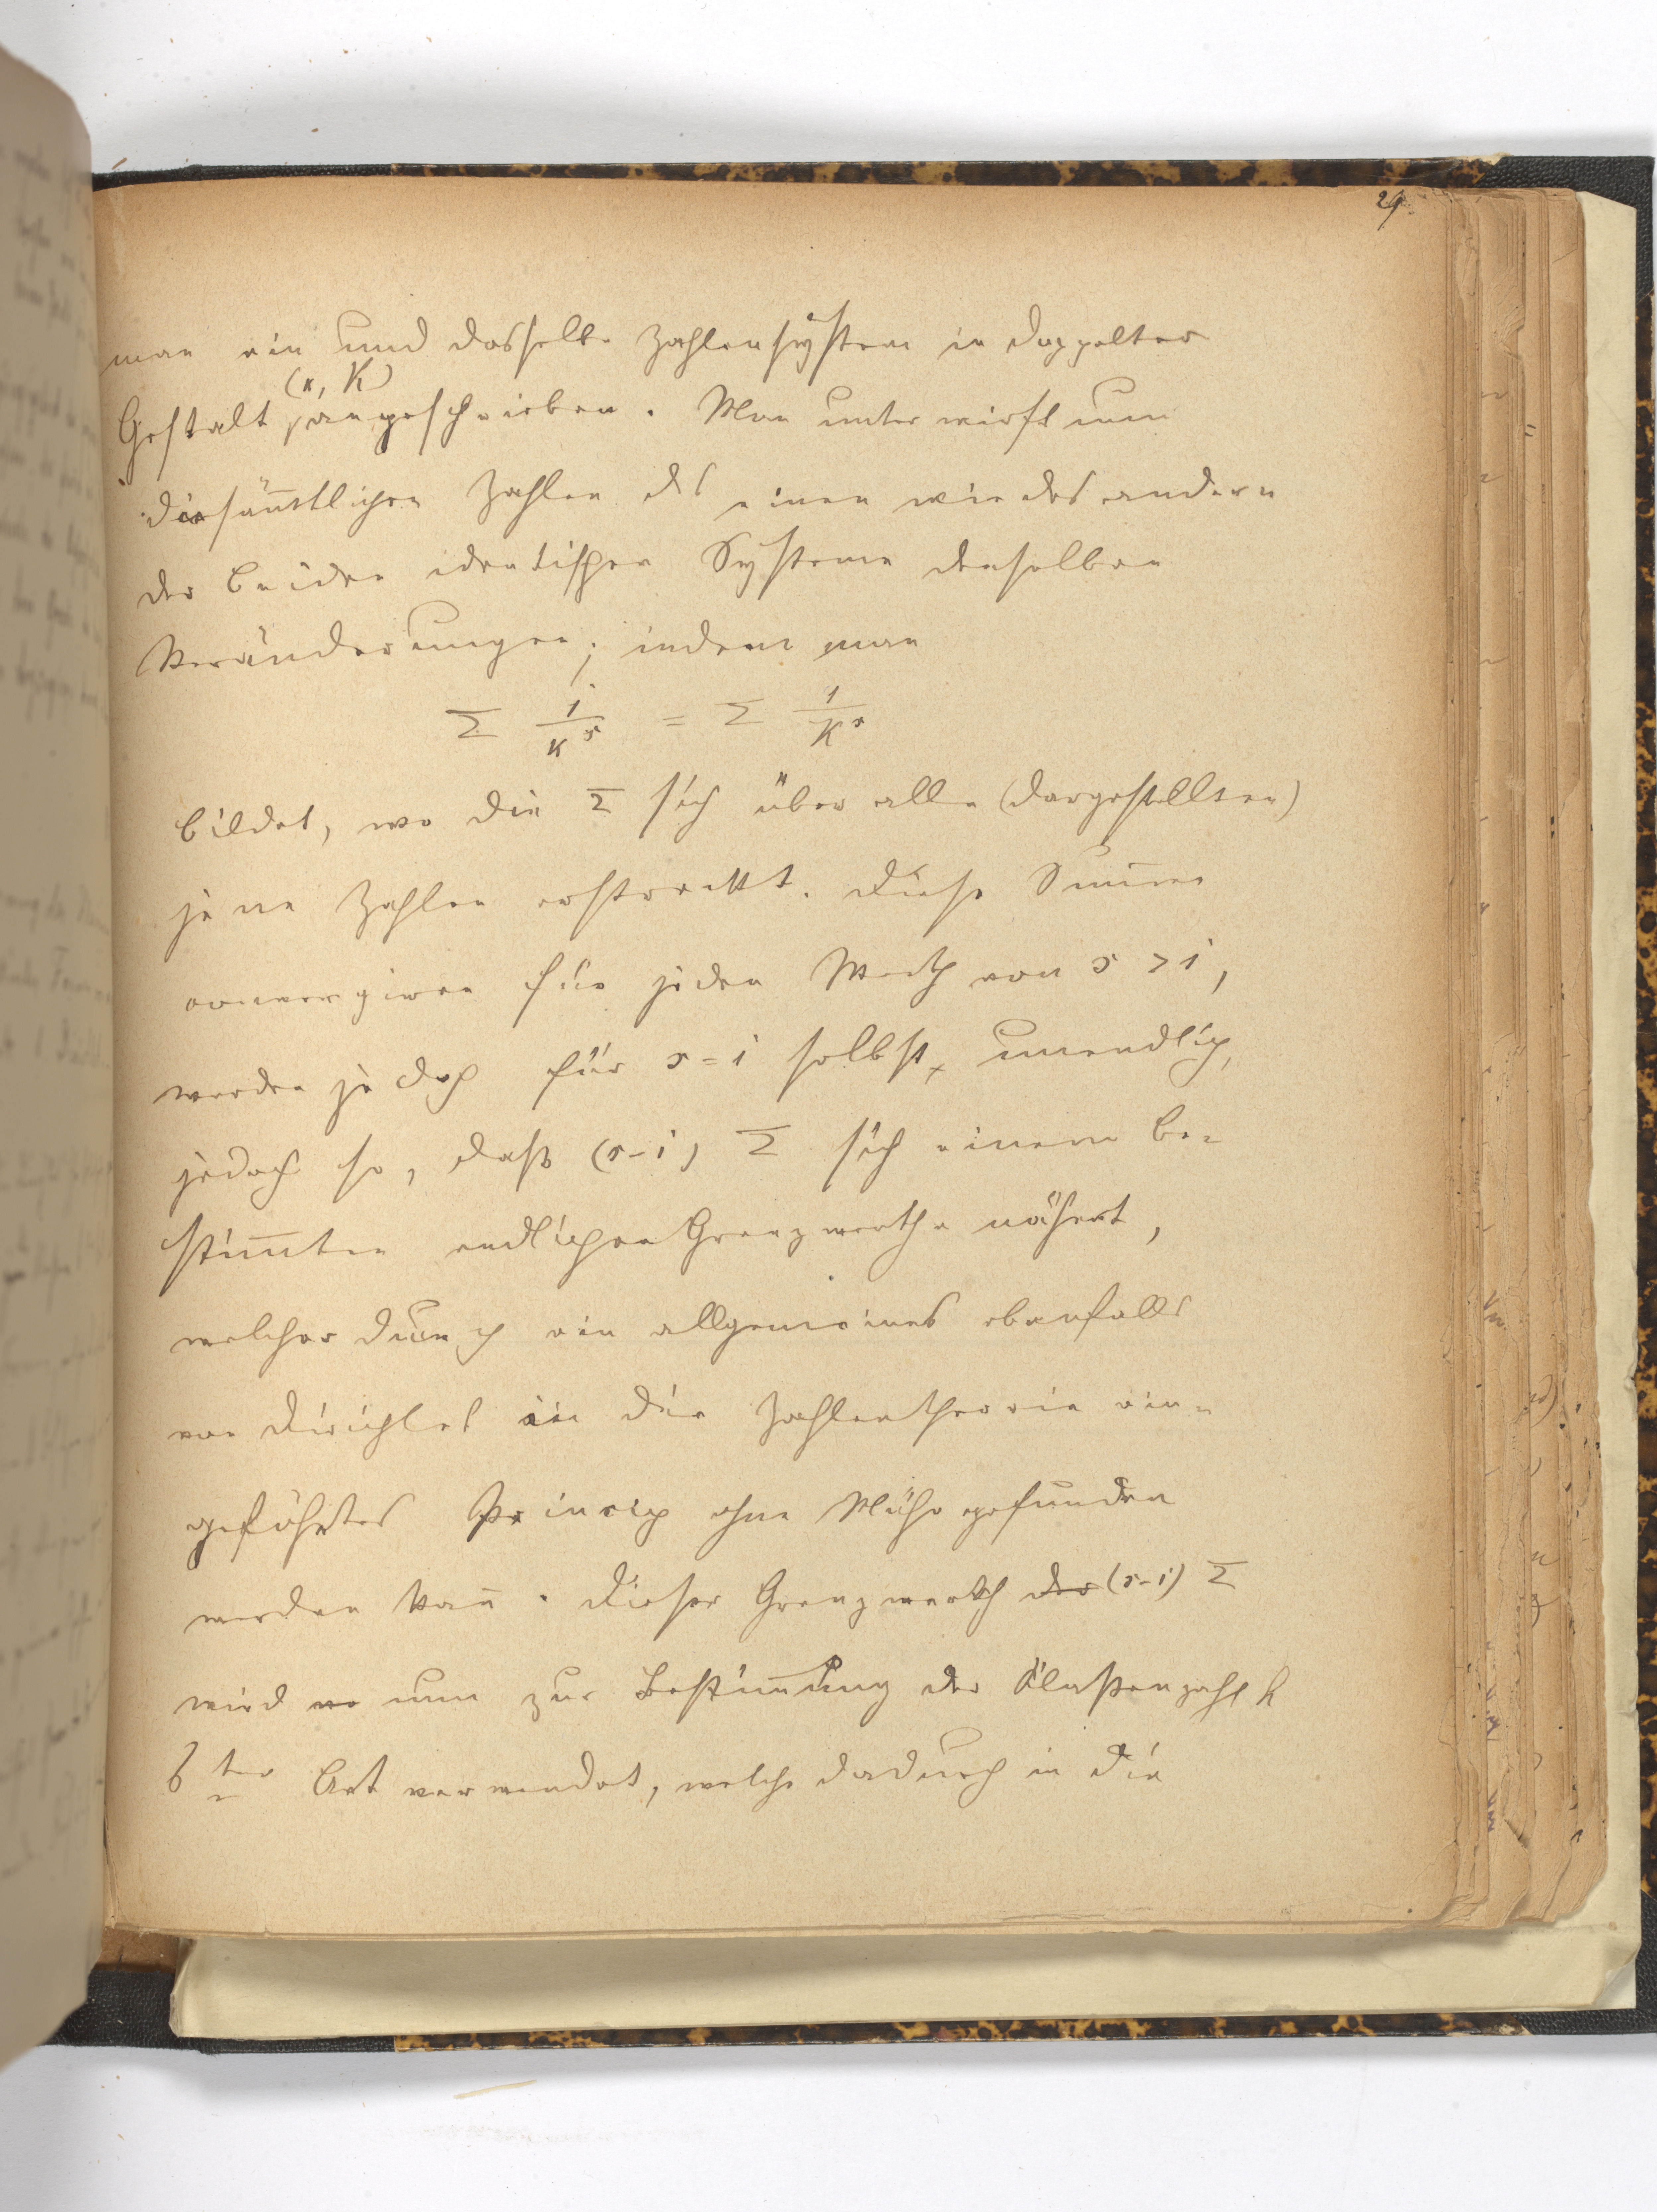 29.
man ein und dasselbe Zahlensystem in doppelter
(κ, K)
Gestalt angeschrieben. Man unterwirft nun
die sām̄tlichen Zahlen des einen wie des andern
der beiden identischen Systeme denselben
Veränderungen; indem man
Σ 1/κ^s = Σ 1/K^s
bildet, wo die Σ sich über alle (dargestellten)
jene Zahlen erstreckt. Diese Sum̄en
convergiren für jeden Werth von s > 1,
werden jedoch für s = 1 selbst, unendlich,
jedoch so, daß (s-1) Σ sich einem be-
stim̄ten endlichen Grenzwerthe nähert,
welcher durch ein allgemeines ebenfalls
von Dirichlet in die Zahlentheorie ein-
geführtes Princip ohne Mühe gefunden
werden kan̄. Dieser Grenzwerth der (s-1) Σ
wird nun zur Bestim̄ung der Klaßenzahl h
ter Art verwendet, welche dadurch in die